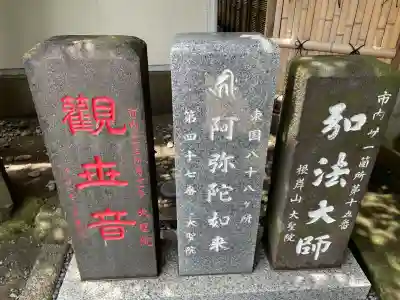 東国八十八ヶ所
阿弥陀如来
第四十七番 大聖院
市内廿一箇所第十五番
弘法大師
根岸山 大聖院
觀世音